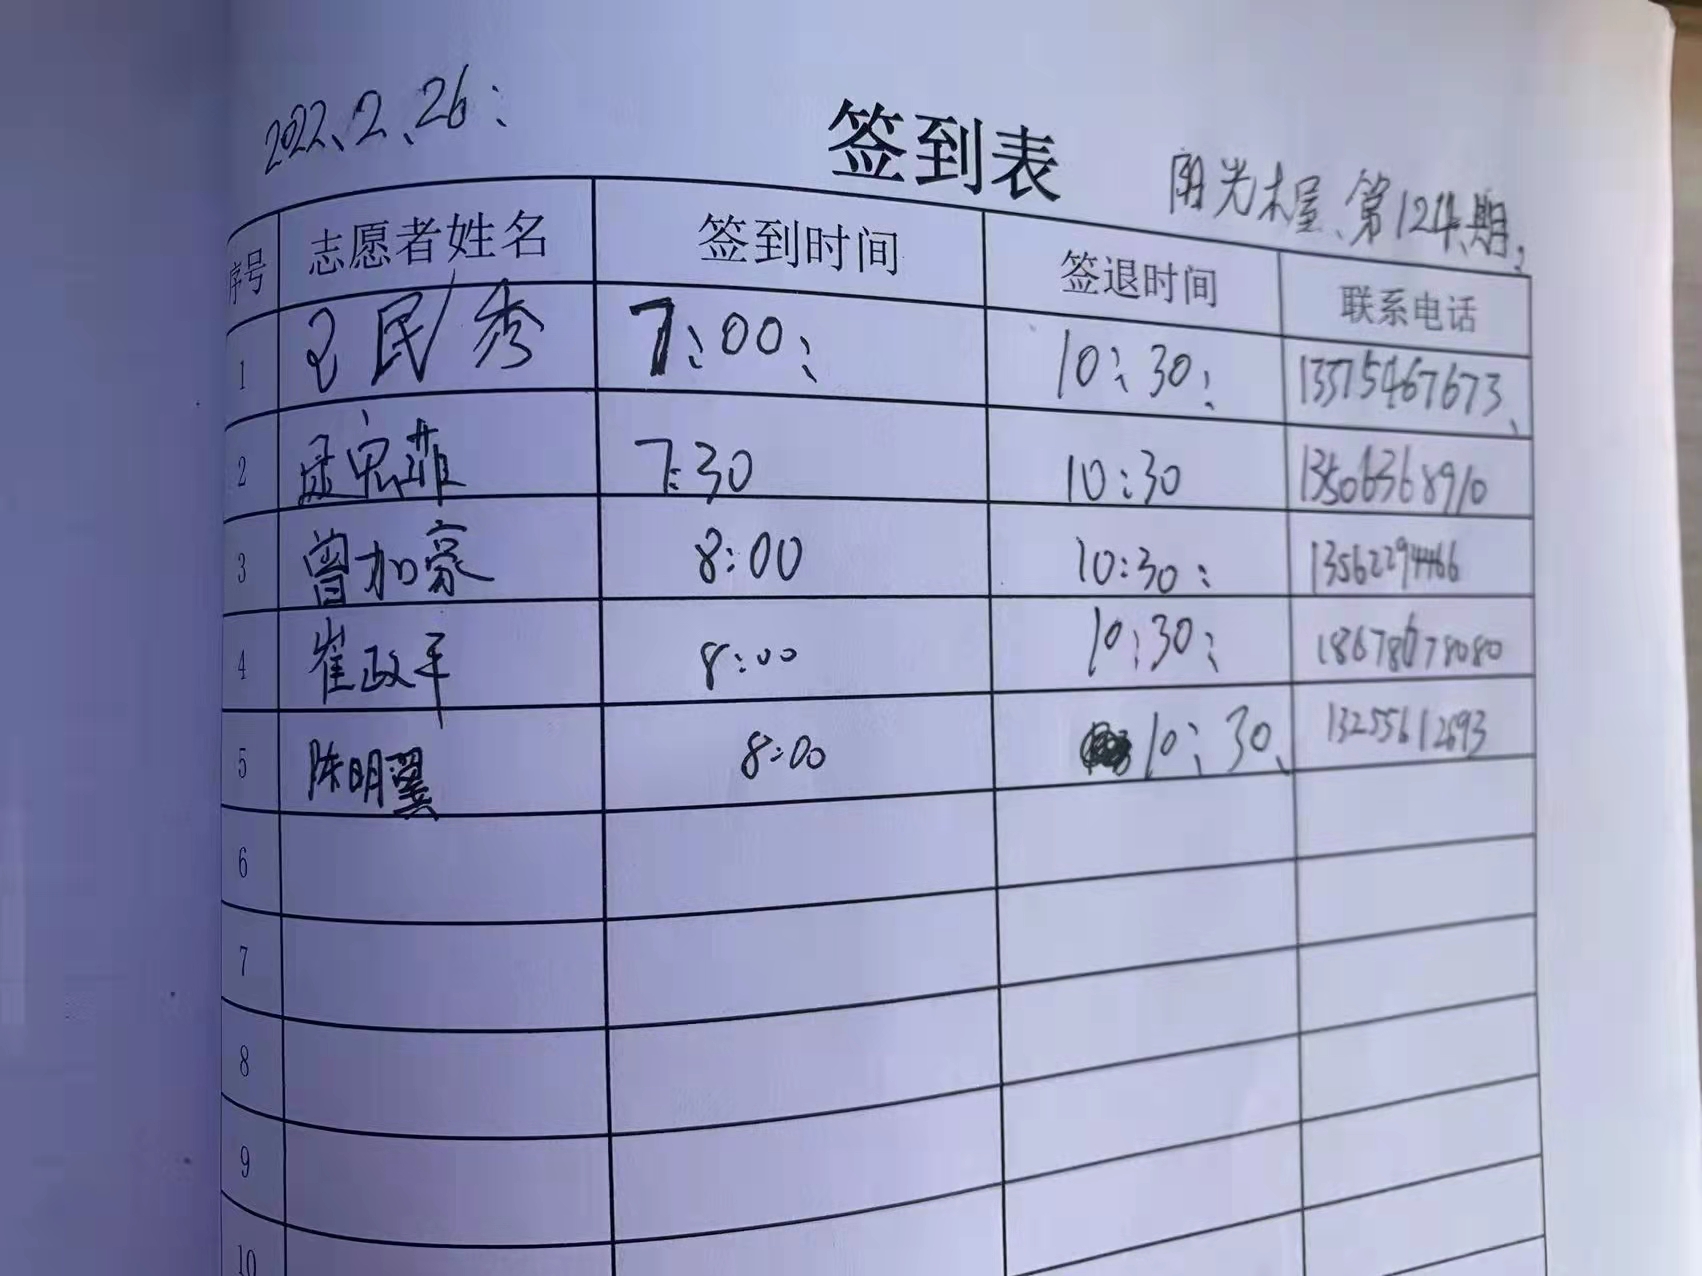 2022、2、26：
签到表
阳光木屋、第124期、
序号 志愿者姓名 签到时间 签退时间 联系电话
1 王民秀 7:00: 10:30: 13375467673、
2 7:30 10:30 13506368910
3 曾加豪 8:00 10:30: 13562294466
4 崔政平 8:00 10:30:
5 陈明翼 8:00 10:30、 13255612693
6
7
8
9
10